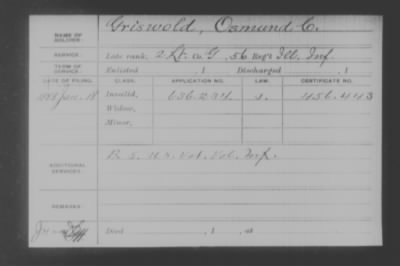 NAME OF SOLDIER: Griswold, Osmund C.
SERVICE: Late rank, 2 Lt. Co. G, 56 Reg't Ill. Inf.
TERM OF SERVICE: Enlisted , 1 Discharged , 1
DATE OF FILING. CLASS. APPLICATION NO. LAW. CERTIFICATE NO.
1888 Jan. 18 Invalid, 636.234 456.443
Widow,
Minor,
ADDITIONAL SERVICES: Vet. Vol. Inf.
REMARKS:
Died , 1 , at